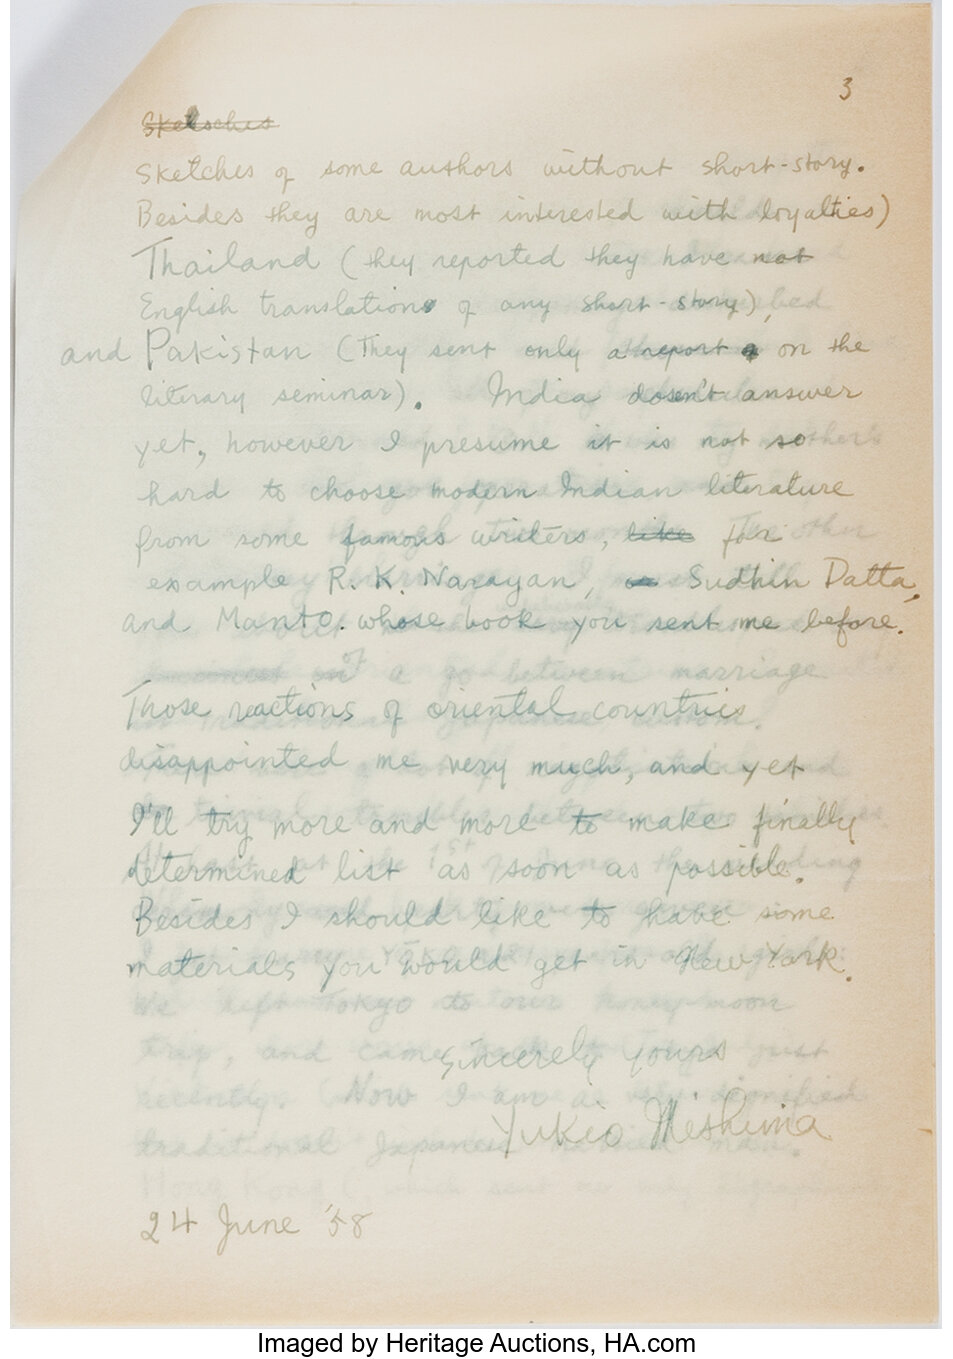 3
Sketches of some authors without short-story.
Besides they are most interested with loyalties)
Thailand (they reported they have not
English translations of any short-story),
and Pakistan (They sent only a report on the
literary seminar). India dosen't answer
yet, however I presume it is not so
hard to choose modern Indian literature
from some famous writers, like for
example R. K. Narayan, Sudhin Datta,
and Manto. whose book you sent me before.
Those reactions of oriental countries
disappointed me very much, and yet
I'll try more and more to make finally
determined list as soon as possible.
Besides I should like to have some
materials you would get in New York.
Sincerely Yours
Yukio Mishima
24 June '58
Imaged by Heritage Auctions, HA.com